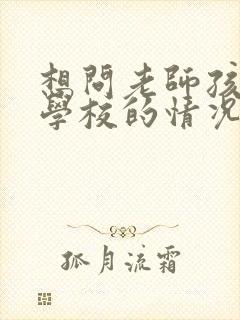 想問老師孩
學校的情況
孤月流霜